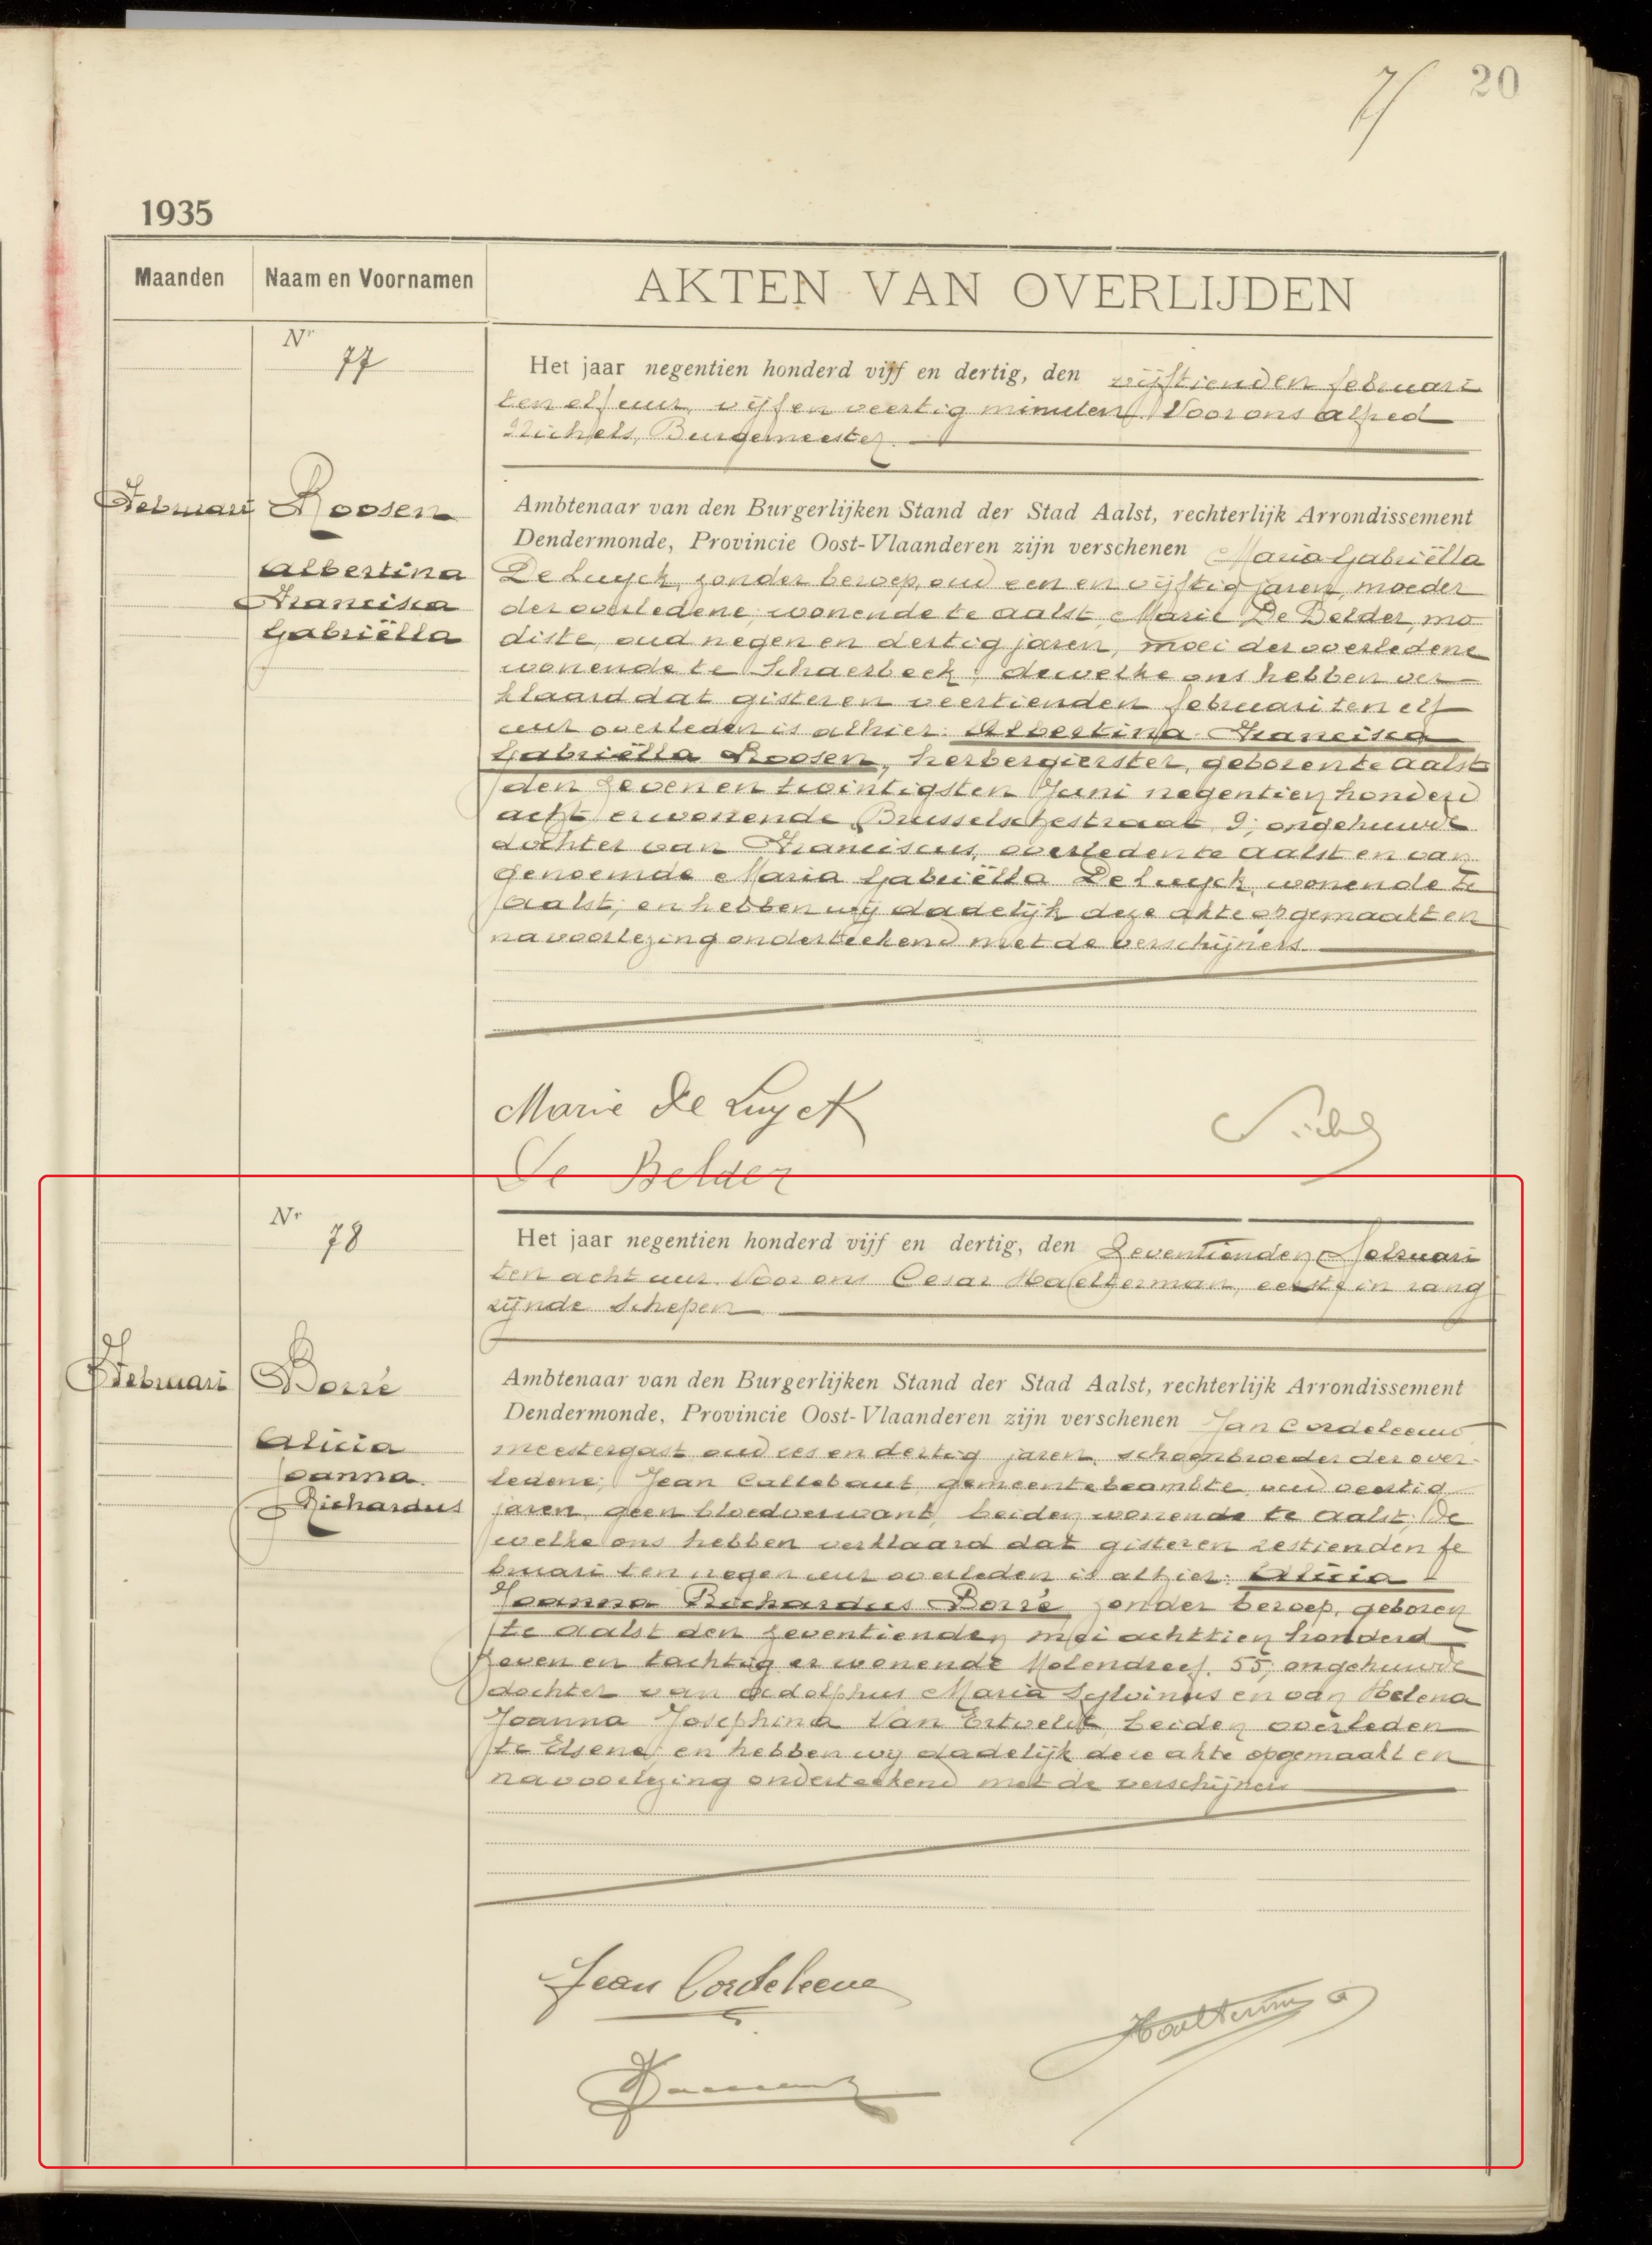 20
1935
Maanden Naam en Voornamen AKTEN VAN OVERLIJDEN
Nr 77
Het jaar negentien honderd vijf en dertig, den vijftienden februari
ten elf uur, vijf en veertig minuten. Voor ons Alfred
Nichels, Burgemeester.
Februari Roosen
Albertina
Francisca
Gabriëlla
Ambtenaar van den Burgerlijken Stand der Stad Aalst, rechterlijk Arrondissement
Dendermonde, Provincie Oost-Vlaanderen zijn verschenen Maria Gabriëlla
De Luyck, zonder beroep, oud een en vijftig jaren, moeder
der overledene, wonende te Aalst, Marie De Belder, mo
diste, oud negen en dertig jaren, moei der overledene
wonende te Schaerbeek; dewelke ons hebben ver-
klaard dat gisteren veertienden februari ten elf
uur overleden is alhier: Albertina Francisca
Gabriëlla Roosen, herbergierster, geboren te Aalst
den zeven en twintigsten Juni negentien honderd
acht er wonende Brusselschestraat, 9; ongehuwde
dochter van Franciscus, overleden te Aalst en van
genoemde Maria Gabriëlla De Luyck, wonende te
Aalst; en hebben wij dadelijk deze akte opgemaakt en
na voorlezing onderteekend met de verschijners.
Marie De Luyck
De Belder
Nr 78
Het jaar negentien honderd vijf en dertig, den Zeventienden Februari
ten acht uur. Voor ons Cesar Haelterman, eerste in rang
zijnde Schepen
Februari Borré
Alicia
Joanna
Richardus
Ambtenaar van den Burgerlijken Stand der Stad Aalst, rechterlijk Arrondissement
Dendermonde, Provincie Oost-Vlaanderen zijn verschenen Jan Cordeleeuw
meestergast oud zes en dertig jaren, schoonbroeder der over-
ledene; Jean Callebaut gemeentebeambte oud veertig
jaren, geen bloedverwant, beiden wonende te Aalst; De
welke ons hebben verklaard dat gisteren zestienden fe
bruari ten negen uur overleden is alhier: Alicia
Joanna Richardus Borré zonder beroep, geboren
te Aalst den zeventienden mei achttien honderd
zeven en tachtig er wonende Molendreef, 55; ongehuwde
dochter van Adolphus Maria Sylvinus en van Helena
Joanna Josephina Van Ertvelde beiden overleden
te Elsene; en hebben wij dadelijk deze akte opgemaakt en
na voorlezing onderteekend met de verschijners
Jean Cordeleeuw
Haelterman